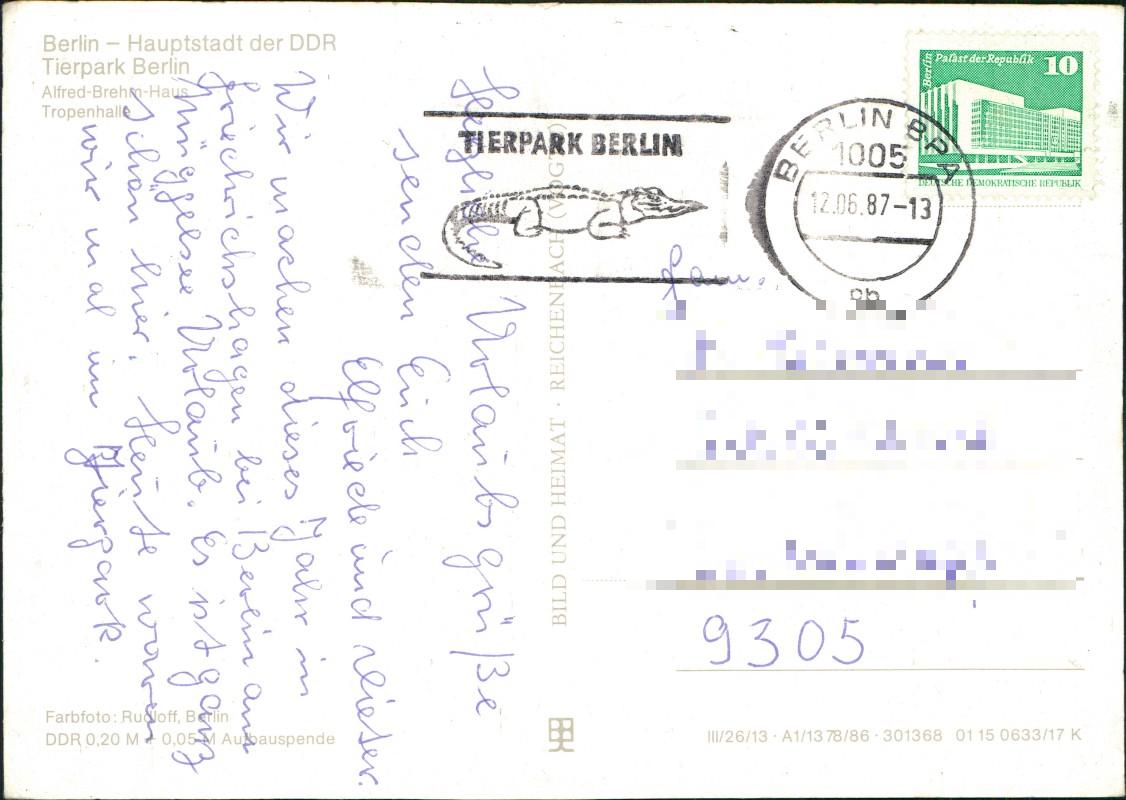 Berlin – Hauptstadt der DDR
Tierpark Berlin
Alfred-Brehm-Haus
Tropenhalle
TIERPARK BERLIN
BERLIN BPA
1005
12.06.87-13
Berlin
Palast der Republik
10
DEUTSCHE DEMOKRATISCHE REPUBLIK
Herzliche Urlaubsgrüße
senden Euch
Elfriede und Dieter.
Wir machen dieses Jahr in
Friedrichshagen bei Berlin am
Müggelsee Urlaub. Es ist ganz
schön hier. Heute waren
wir mal im Tierpark.
BILD UND HEIMAT · REICHENBACH (VOGTL)
Fam.
9305
Farbfoto: Rudloff, Berlin
DDR 0,20 M + 0,05 M Aufbauspende
III/26/13 · A1/1378/86 · 301368 01 15 0633/17 K